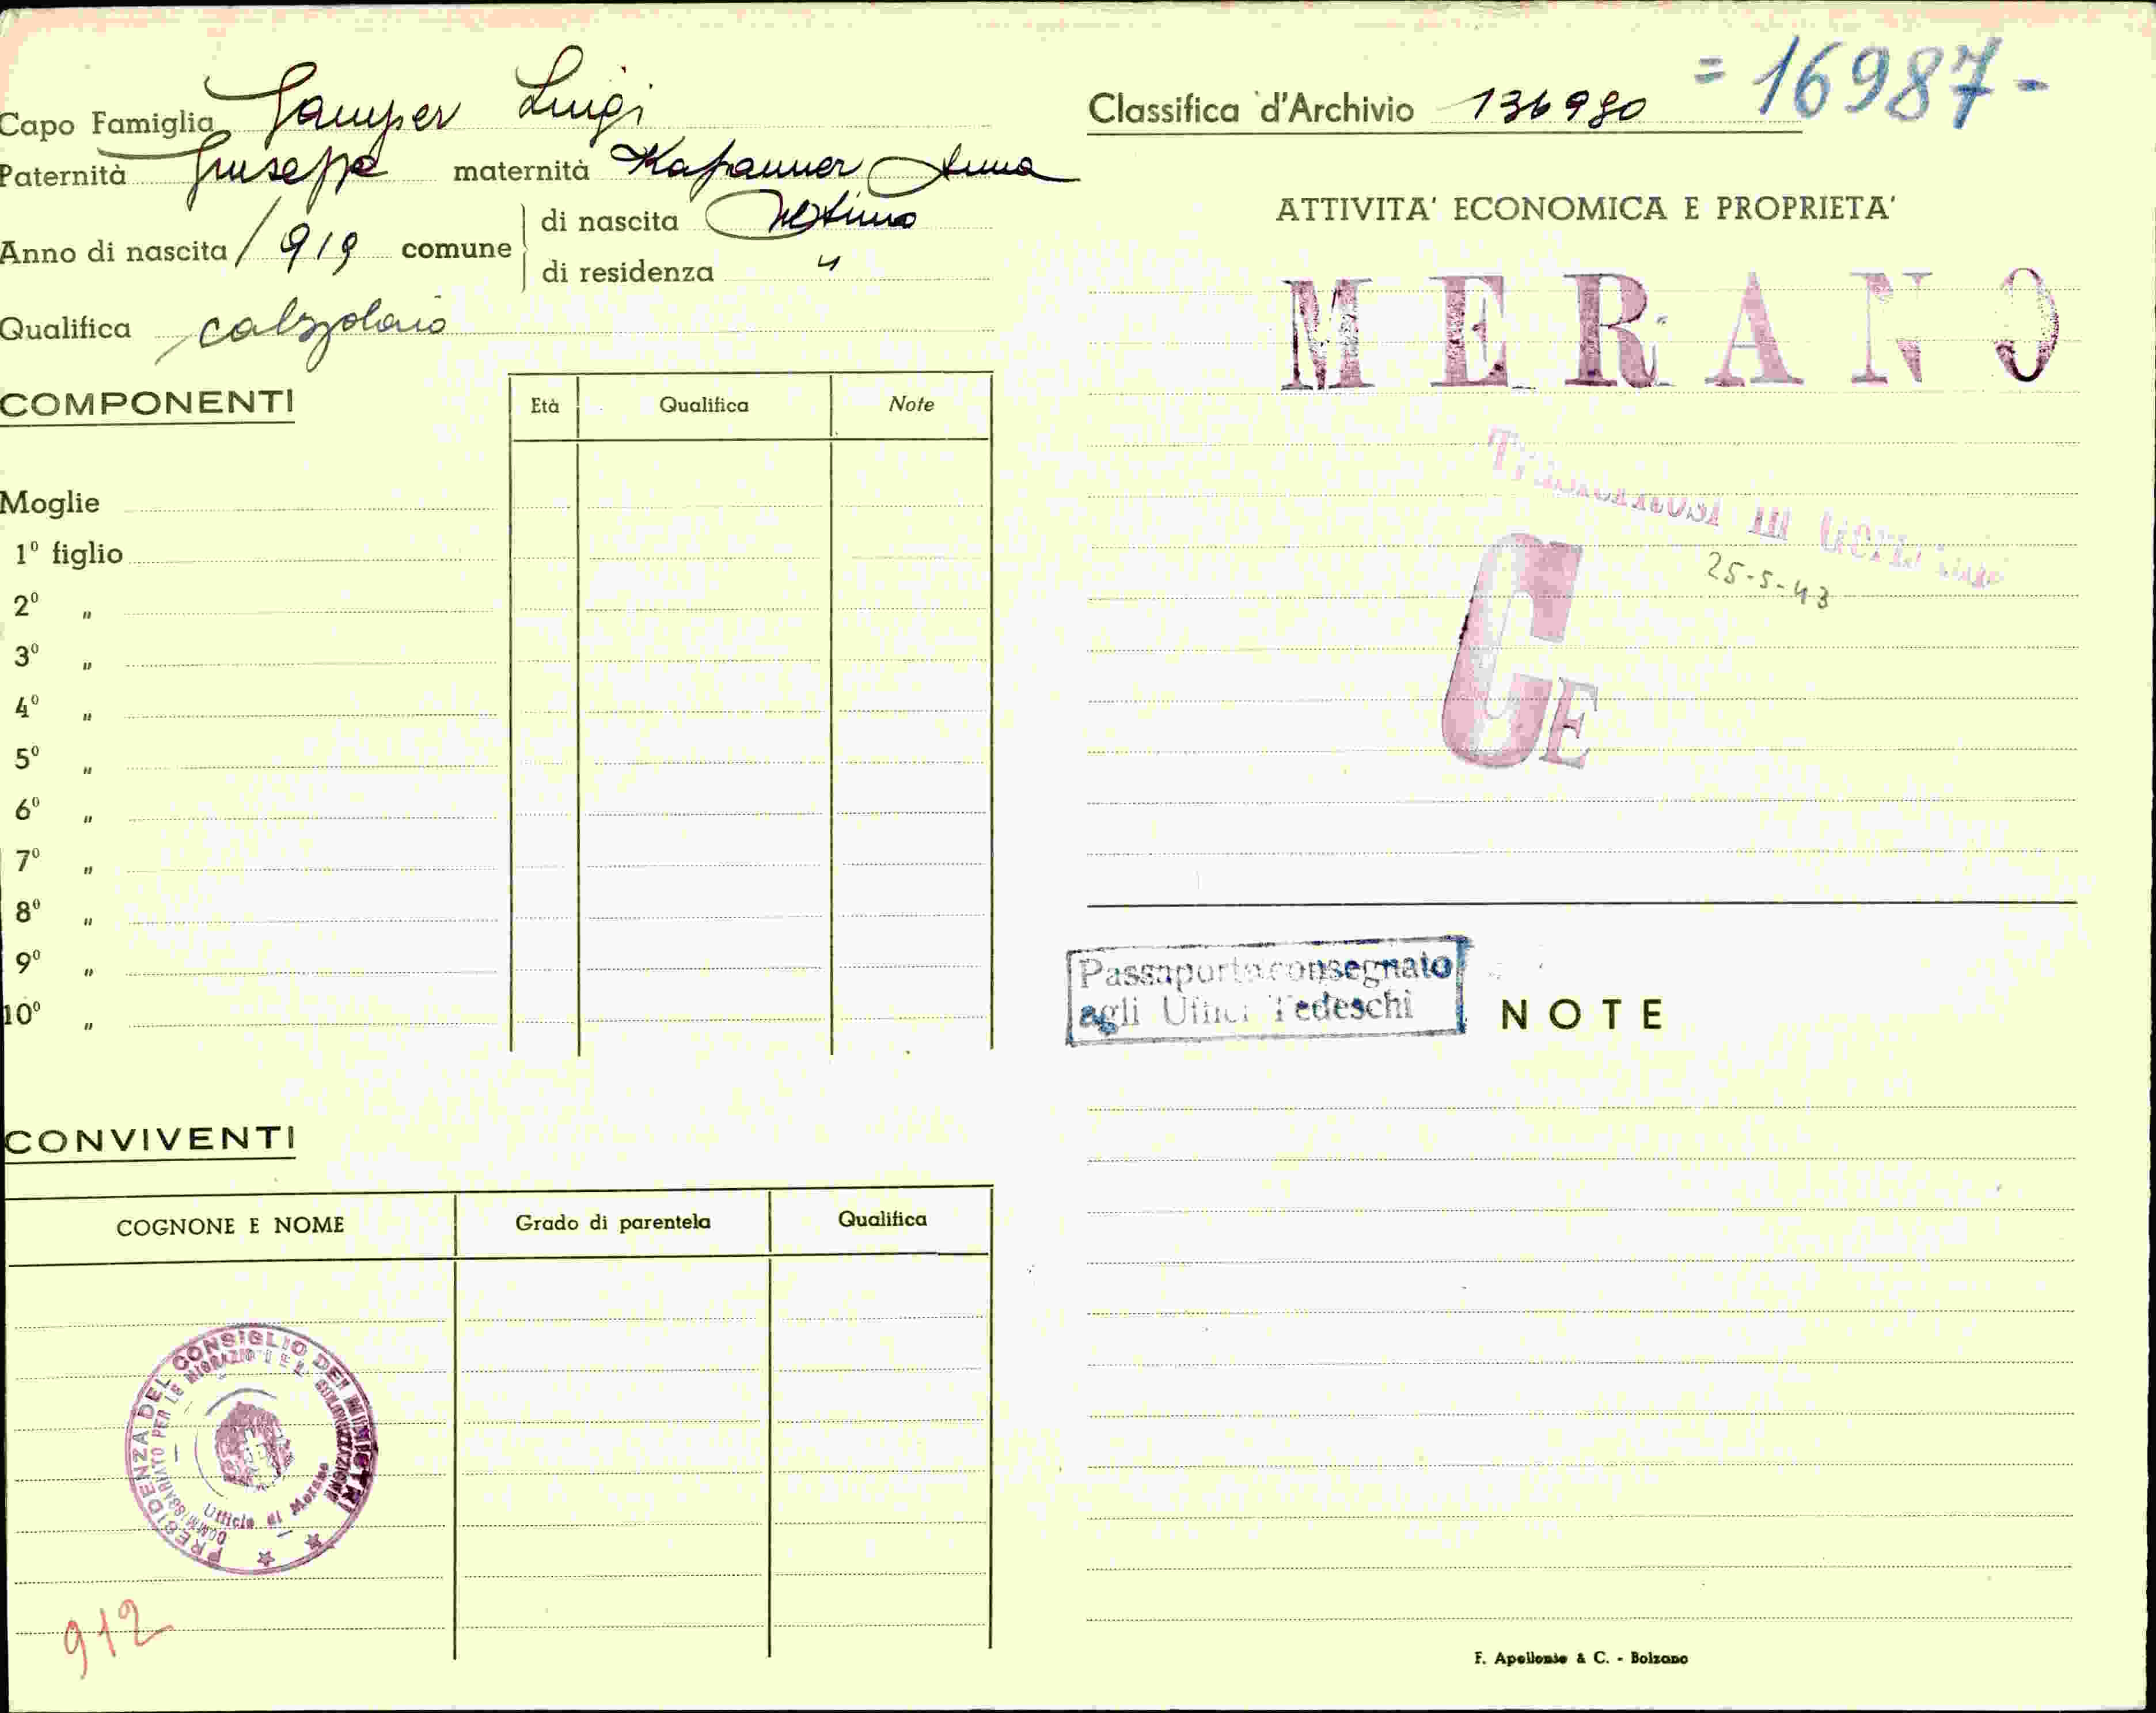 Capo Famiglia Gamper Luigi
Paternità Giuseppe maternità Kapauner Anna
Anno di nascita 1919 comune di nascita
di residenza "
Qualifica calzolaio
COMPONENTI
Età Qualifica Note
Moglie
1º figlio
2º "
3º "
4º "
5º "
6º "
7º "
8º "
9º "
10º "
CONVIVENTI
COGNONE E NOME Grado di parentela Qualifica
PRESIDENZA DEL CONSIGLIO DEI MINISTRI
COMMISSARIATO PER LE MIGRAZIONI E LA COLONIZZAZIONE
Ufficio di Merano
912
Classifica d'Archivio 136980 = 16987 -
ATTIVITA' ECONOMICA E PROPRIETA'
MERANO
Trasferitosi in Germania
25-5-43
GE
Passaporto consegnato
agli Uffici Tedeschi
NOTE
F. Apollonio & C. - Bolzano